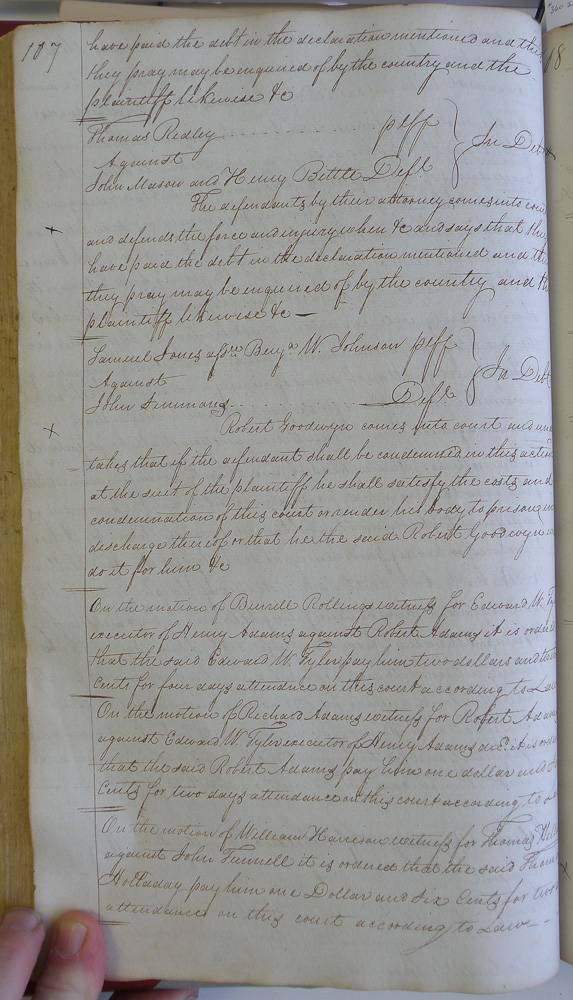 187
have paid the debt in the declaration mentioned and
they pray may be enquired of by the country and the
plaintiff likewise &c
Thomas Ridley plff
Against In Debt
John Mason and Henry Bittle Deft
The defendants by their attorney comes into
and defends the force and injury when &c and says that they
have paid the debt in the declaration mentioned and
they pray may be enquired of by the country and
plaintiff likewise &c —
Samuel Jones assnee Benja W. Johnson plff
Against In Debt
John Simmons Deft
Robert Goodwyn comes into court and
takes that if the defendant shall be condemned in this action
at the suit of the plaintiff he shall satisfy the costs and
condemnation of this court or render his body to prison in
discharge thereof or that he the said Robert Goodwyn
do it for him &c
On the motion of Burrell Rollings witness for Edward W.
executor of Henry Adams against Robert Adams it is
that the said Edward W. Tyler pay him two dollars and
Cents for four days attendance on this court according to Law
On the motion of Richard Adams witness for Robert
against Edward W. Tyler executor of Henry Adams decd it is
that the said Robert Adams pay him one dollar and
Cents for two days attendance on this court according to
On the motion of William Harrison witness for Thomas
against John Funnell it is ordered that the said
Holladay pay him one Dollar and six Cents for two
attendance on this court according to Law —